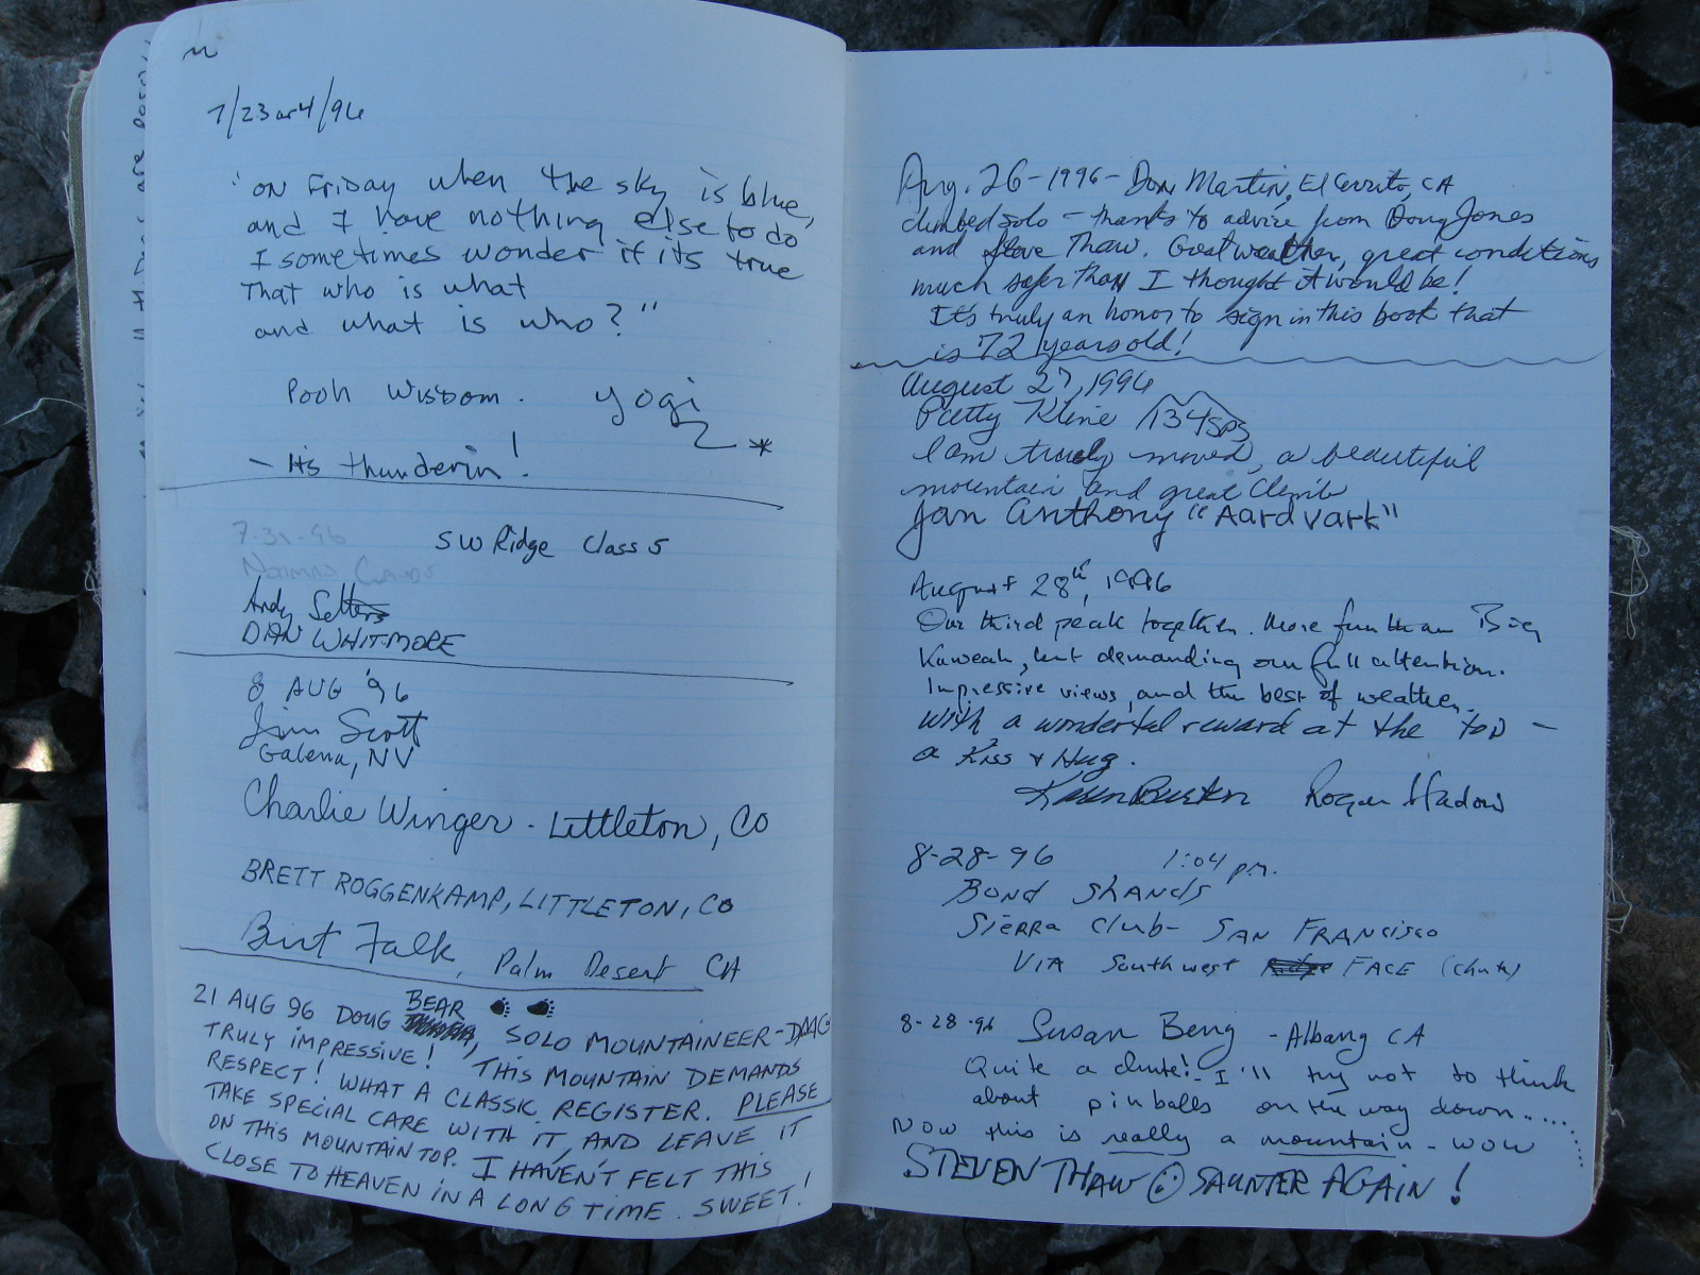 7/23 or 4/96
"on Friday when the sky is blue,
and I have nothing else to do
I sometimes wonder if its true
That who is what
and what is who?"
Pooh Wisdom. yogi
- Its thunderin!
7-31-96 SW Ridge Class 5
Andy Selters
DAN WHITMORE
8 AUG '96
Jim Scott
Galena, NV
Charlie Winger - Littleton, CO
BRETT ROGGENKAMP, LITTLETON, CO
Burt Falk, Palm Desert CA
21 AUG 96 DOUG BEAR, SOLO MOUNTAINEER-
TRULY IMPRESSIVE! THIS MOUNTAIN DEMANDS
RESPECT! WHAT A CLASSIC REGISTER. PLEASE
TAKE SPECIAL CARE WITH IT, AND LEAVE IT
ON THIS MOUNTAIN TOP. I HAVEN'T FELT THIS
CLOSE TO HEAVEN IN A LONG TIME. SWEET!
Aug. 26-1996- Don Martin, El Cerrito, CA
climbed solo - thanks to advice from Doug Jones
and Steve Thaw. Great weather, great conditions
much safer than I thought it would be!
It's truly an honor to sign in this book that
is 72 years old!
August 27, 1996
Patty Kline 134 SPS
I am truely moved, a beautiful
mountain and great Climb
Jan Anthony "Aardvark"
August 28th, 1996
Our third peak together. More fun than Big
Kaweah, but demanding our full attention.
Impressive views, and the best of weather.
With a wonderful reward at the top -
a Kiss & Hug.
Roger
8-28-96 1:04 pm.
Bond SHANDS
Sierra Club- SAN FRANCISCO
VIA Southwest FACE (chute)
8-28-96 Susan Beng - Albany CA
Quite a chute! I'll try not to think
about pinballs on the way down.....
Now this is really a mountain - WOW
STEVEN THAW SAUNTER AGAIN!